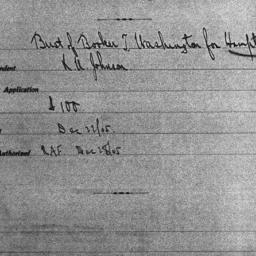 Bust of Booker T. Washington for Hampt
ndent K. A. Johnson
Application
$100
Dec 22/05.
Authorized RAF Dec 28/05